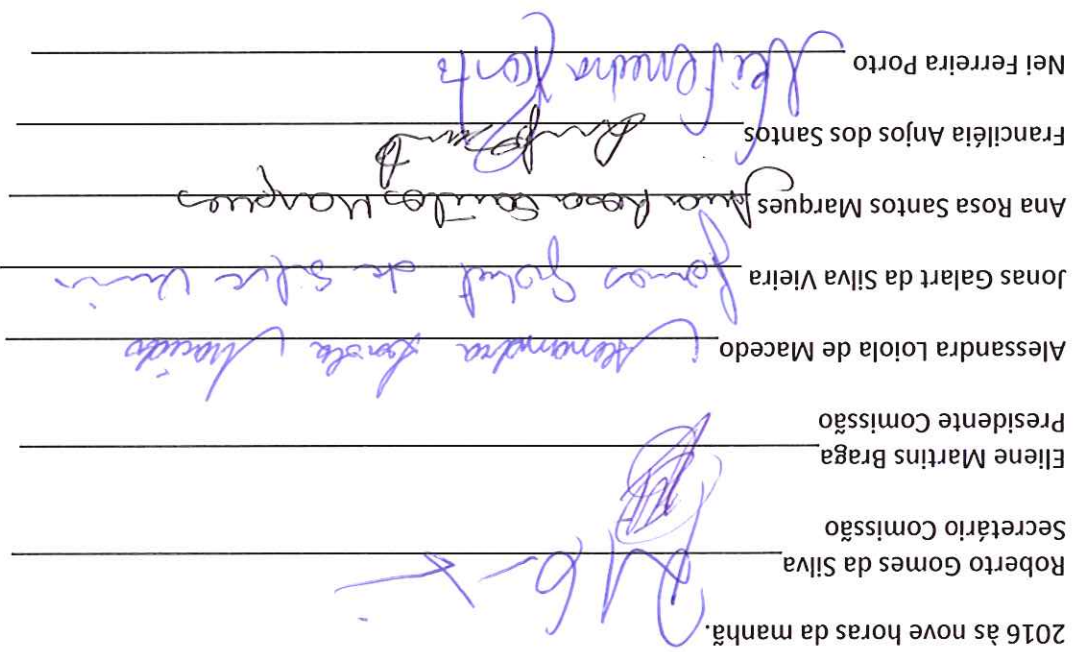 2016 às nove horas da manhã.
Roberto Gomes da Silva
Secretário Comissão
Eliene Martins Braga
Presidente Comissão
Alessandra Loiola de Macedo Alessandra Loiola Macedo
Jonas Galart da Silva Vieira Jonas Galart da Silva Vieira
Ana Rosa Santos Marques Ana Rosa Santos Marques
Franciléia Anjos dos Santos
Nei Ferreira Porto Nei Ferreira Porto